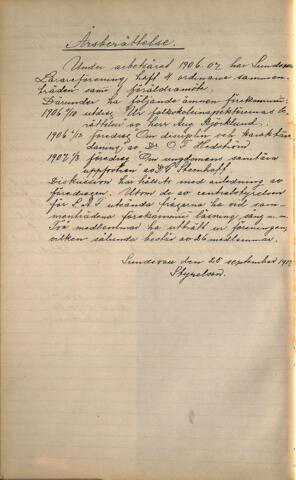 Årsberättelse.
Under arbetsåret 1906-07 har Sundsvalls
Lärareförening haft 4 ordinarie samman-
träden samt 1 föräldramöte.
Därunder ha följande ämnen förekommit:
1906 /10 utdrag ur folkskoleinspektörernas be-
rättelser av herr Aug. Björklund.
1906 /12 föredrag Om disciplin och karaktärs
daning av Dr O. F. Hedström
1907 /3 föredrag Om ungdomens samfära
uppfostran av Dr Stenhoff.
Diskussion har hållits med anledning av
föredragen. Utom de av centralstyrelsen
för S.A.F. utsända frågorna ha vid sam-
manträdena förekommit läsning sång
Två medlemmar ha utträtt ur föreningen
vilken sålunda består av 26 medlemmar.
Sundsvall den 28 september 1907
Styrelsen.